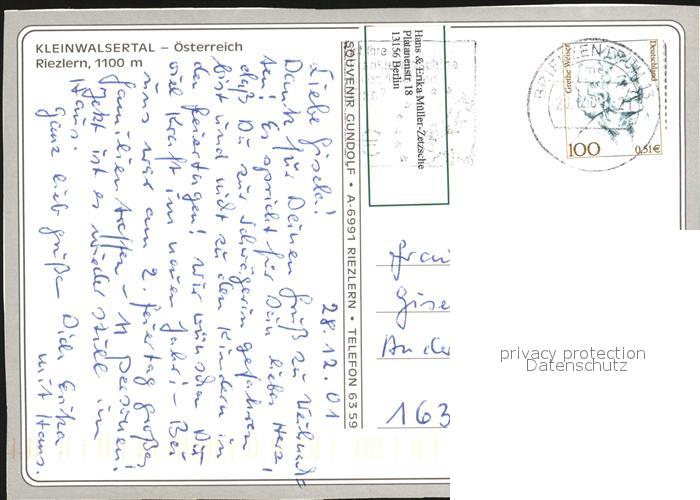 KLEINWALSERTAL – Österreich
Riezlern, 1100 m
28.12.01
Liebe Gisela!
Dank für Deinen Gruß zu Weihnach=
ten! Es spricht für Dein liebes Herz,
daß Du zur Schwägerin gefahren
bist und nicht zu den Kindern in
den Feiertagen! Wir wünschen Dir
viel Kraft im neuen Jahr! – Bei
uns war am 2. Feiertag großes
Familientreffen – 11 Personen!
Jetzt ist es wieder still im
Haus!
Ganz lieb grüße Dich Erika
mit Hans.
SOUVENIR GUNDOLF • A-6991 RIEZLERN • TELEFON 63 59
Hans & Erika Müller-Zetzsche
Platanenstr. 18
13156 Berlin
BRIEFZENTRUM 13
Deutschland
Grethe Weiser
100
0,51€
Frau
Gise
An der
163
privacy protection
Datenschutz